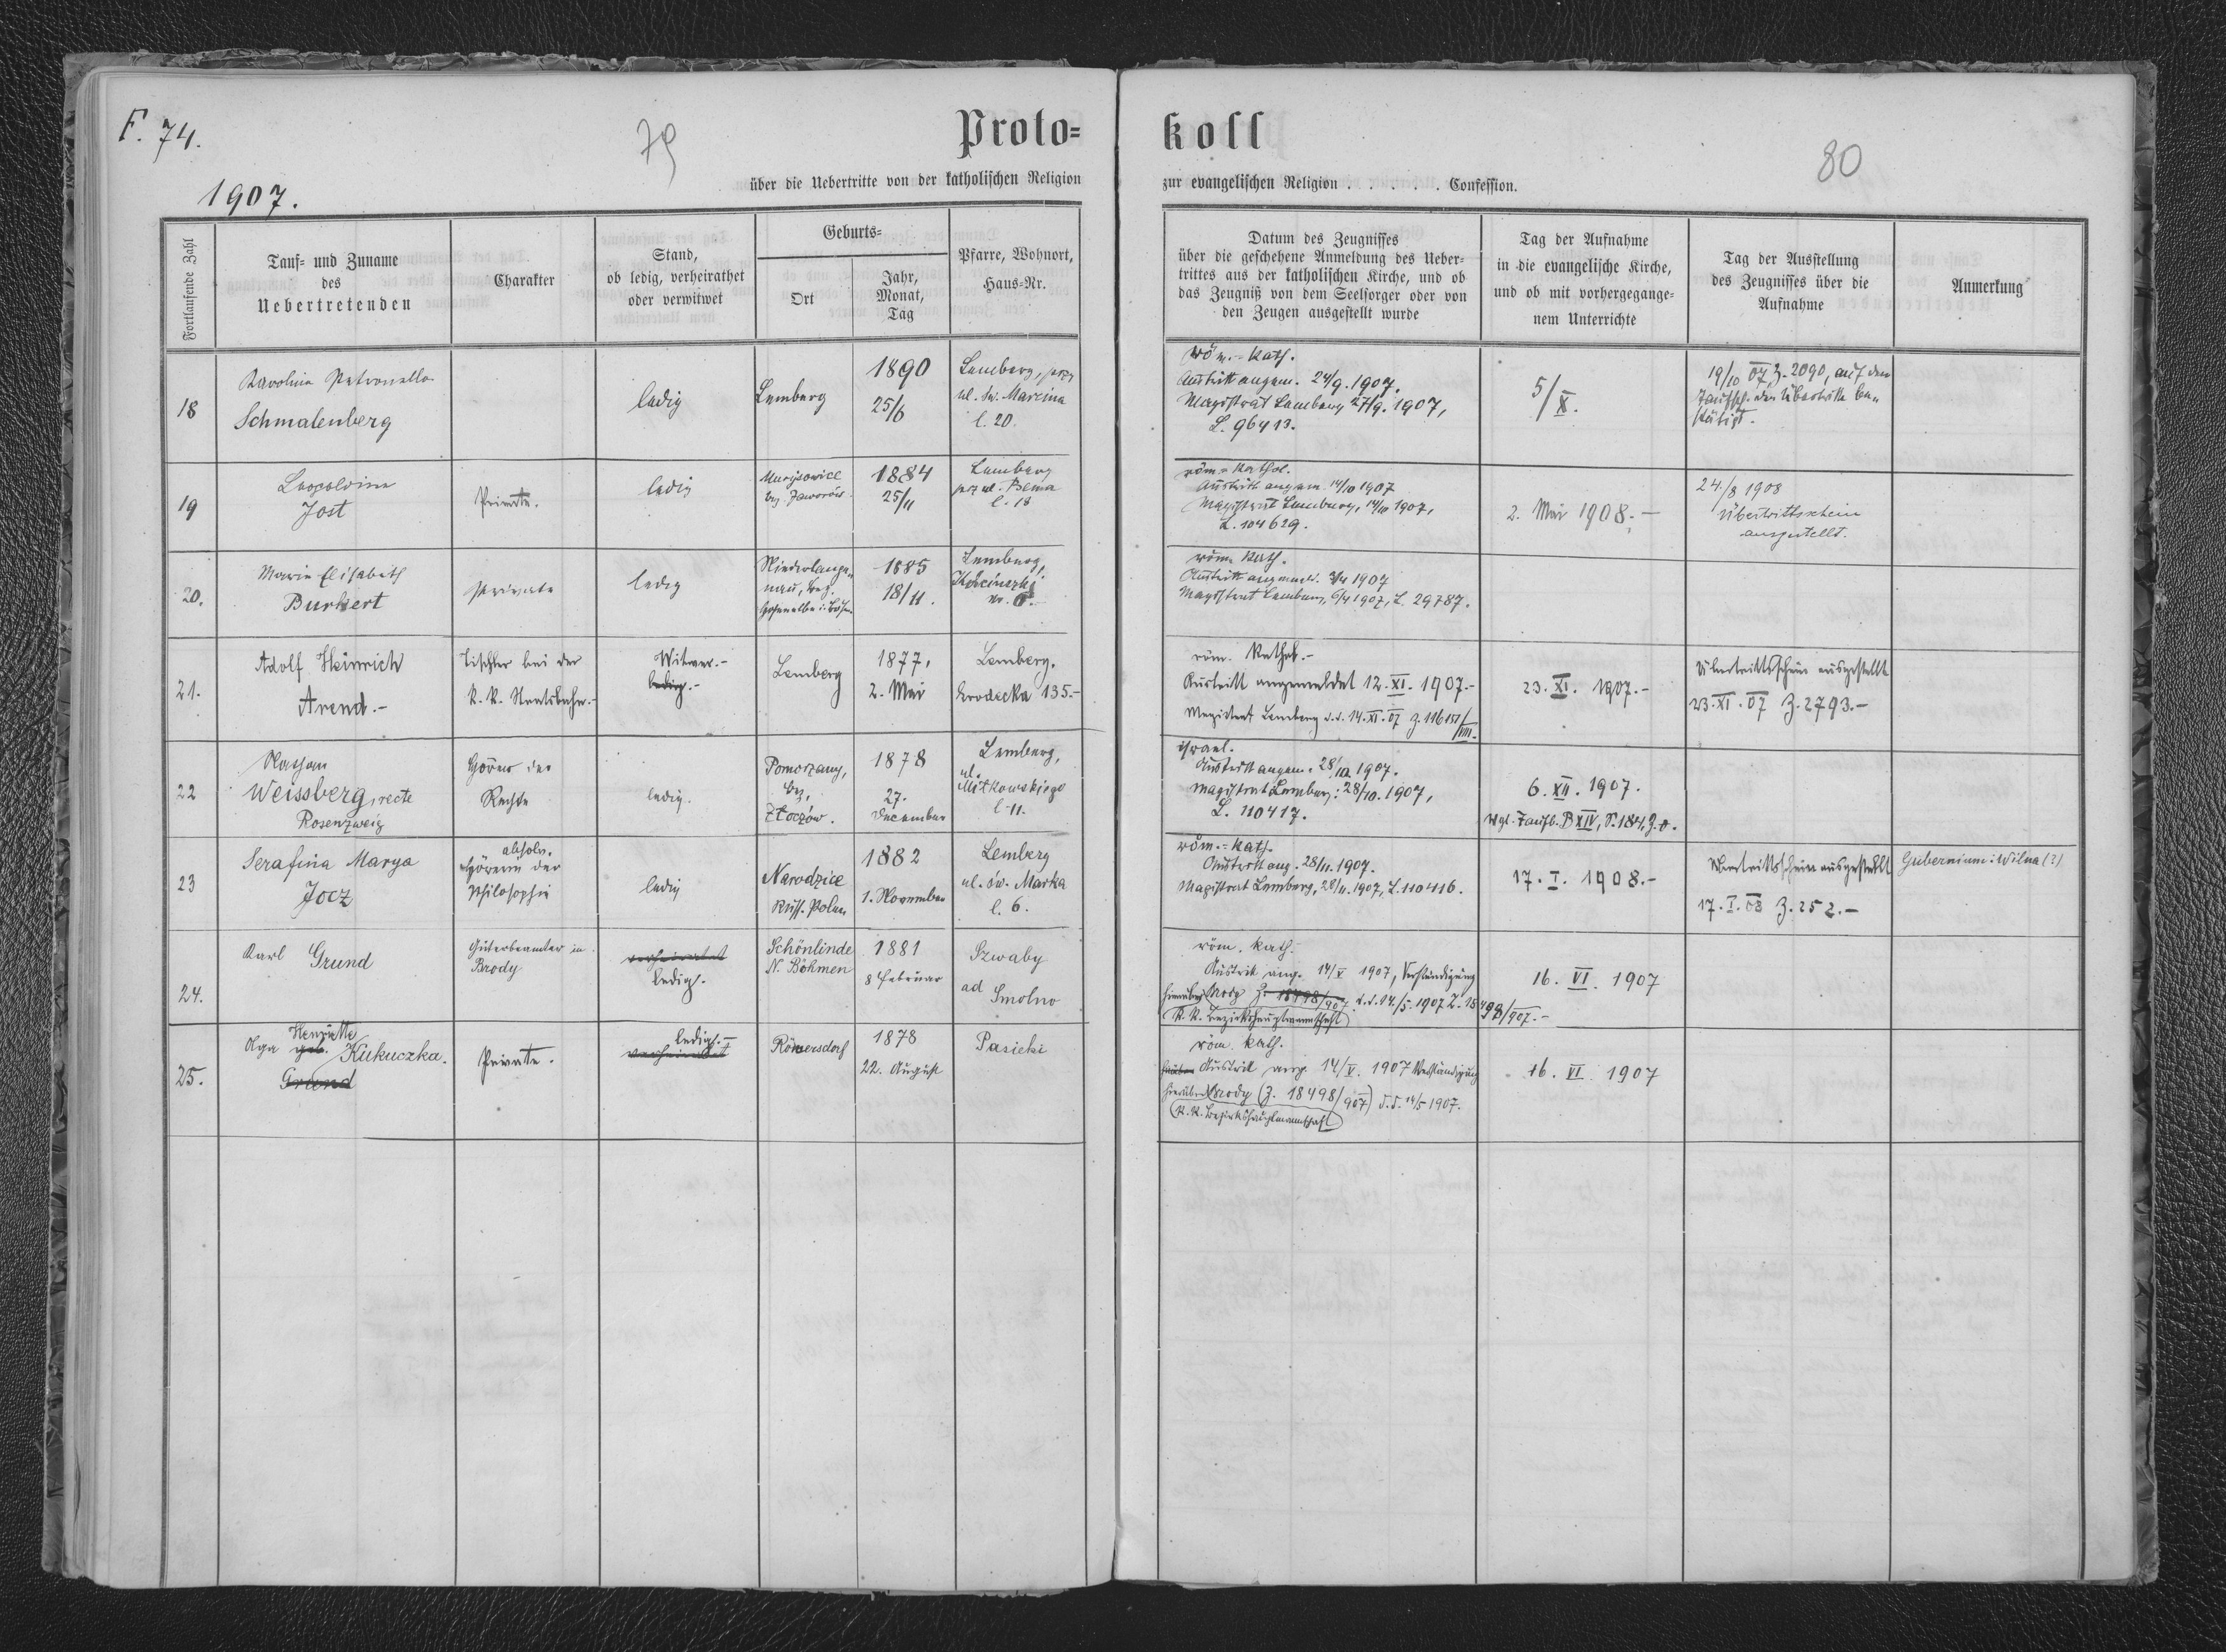 F. 74.
79
Proto=
koll
80
1907.
über die Uebertritte von der katholischen Religion
zur evangelischen Religion . . . . . . Confession.
Fortlaufende Zahl
Tauf= und Zuname
des
Uebertretenden
Charakter
Stand,
ob ledig, verheirathet
oder verwitwet
Geburts=
Ort
Jahr,
Monat,
Tag
Pfarre, Wohnort,
Haus=Nr.
Datum des Zeugnisses
über die geschehene Anmeldung des Ueber=
trittes aus der katholischen Kirche, und ob
das Zeugniß von dem Seelsorger oder von
den Zeugen ausgestellt wurde
Tag der Aufnahme
in die evangelische Kirche,
und ob mit vorhergegange=
nem Unterrichte
Tag der Ausstellung
des Zeugnisses über die
Aufnahme
Anmerkung
18
Karolina Petronella
Schmalenberg
ledig
Lemberg
1890
25/6
Lemberg,
ul. św. Marcina
l. 20.
röm.-kath.
Austritt angem. 24/9. 1907.
Magistrat Lemberg 27/9. 1907,
L. 96413.
5/X.
19/10 07, Z. 2090, auf dem
Taufsch. der Übertritt be-
stätigt.
19
Leopoldine
Jost
Private.
ledig
bz. Jaworów
1884
25/11
Lemberg
ul. Bema
l. 18
röm.-kathol.
Austritt angem. 14/10 1907
Magistrat Lemberg, 14/10 1907,
L. 104629.
2. Mai 1908.-
24./8 1908
Übertrittsschein
ausgestellt.
20.
Marie Elisabeth
Burkert
Private
ledig
Niederlange-
nau, bez.
Hohenelbe i. Böhm.
1885
18/11.
Lemberg,
röm. kath.
Austritt angemeld. 1907
Magistrat Lemberg, 6/4 1907, L. 29787.
21.
Adolf Heinrich
Arend.-
Tischler bei der
K. K. Staatsbahn.-
Witwer.-
ledig.-
Lemberg
1877,
2. Mai
Lemberg,
Grodecka 135.-
röm. Kathol.-
Austritt angemeldet 12. XI. 1907.-
Magistrat Lemberg d.d. 14. XI. 07 Z. 116151/VIII.
23. XI. 1907.-
Übertrittsschein ausgestellt
23. XI. 07 Z. 2793.-
22
Nathan
Weissberg, recte
Rosenzweig
Hörer der
Rechte
ledig.
Pomorzany,
bz.
Złoczów.
1878
27.
December
Lemberg,
ul.
Miłkowskiego
l. 11.
israel.
Austritt angem. 28/10. 1907.
Magistrat Lemberg: 28/10. 1907,
L. 110417.
6. XII. 1907.
Vgl. Taufb. B XIV, S. 184, Z. 8.
23
Serafina Marya
Jocz
absolv.
Hörerin der
Philosophie
ledig
Narodzice
Russ. Polen
1882
1. November
Lemberg
ul. św. Marka
l. 6.
röm.=kath.
Austritt ang. 28/11. 1907.
Magistrat Lemberg, 28/11. 1907, L. 110416.
17. I. 1908.-
Übertrittsschein ausgestellt
17. I. 08 Z. 252.-
Gubernium: Wilna (?)
24.
Karl Grund
Güterbeamter in
Brody
verheiratet
ledig.
Schönlinde
N. Böhmen
1881
8 Februar
Szwaby
ad Smolno
röm. kath.
Austritt ang. 14/V 1907, Verständigung
hierüber Brody Z. 18498/907 d.d. 14./5. 1907 Z. 18498/907.-
K. K. Bezirkshauptmannschaft
16. VI. 1907
25.
Henriette
Olga geb. Kukuczka.
Grund
Private.
ledig.-
verheiratet
Römersdorf
1878
22. August
Pasieki
röm. kath.
Austritt ang. 14/V. 1907 Verständigung
hierüber Brody (Z. 18498/907) d.d. 14/5 1907.
(K. K. Bezirkshauptmannschaft)
16. VI. 1907